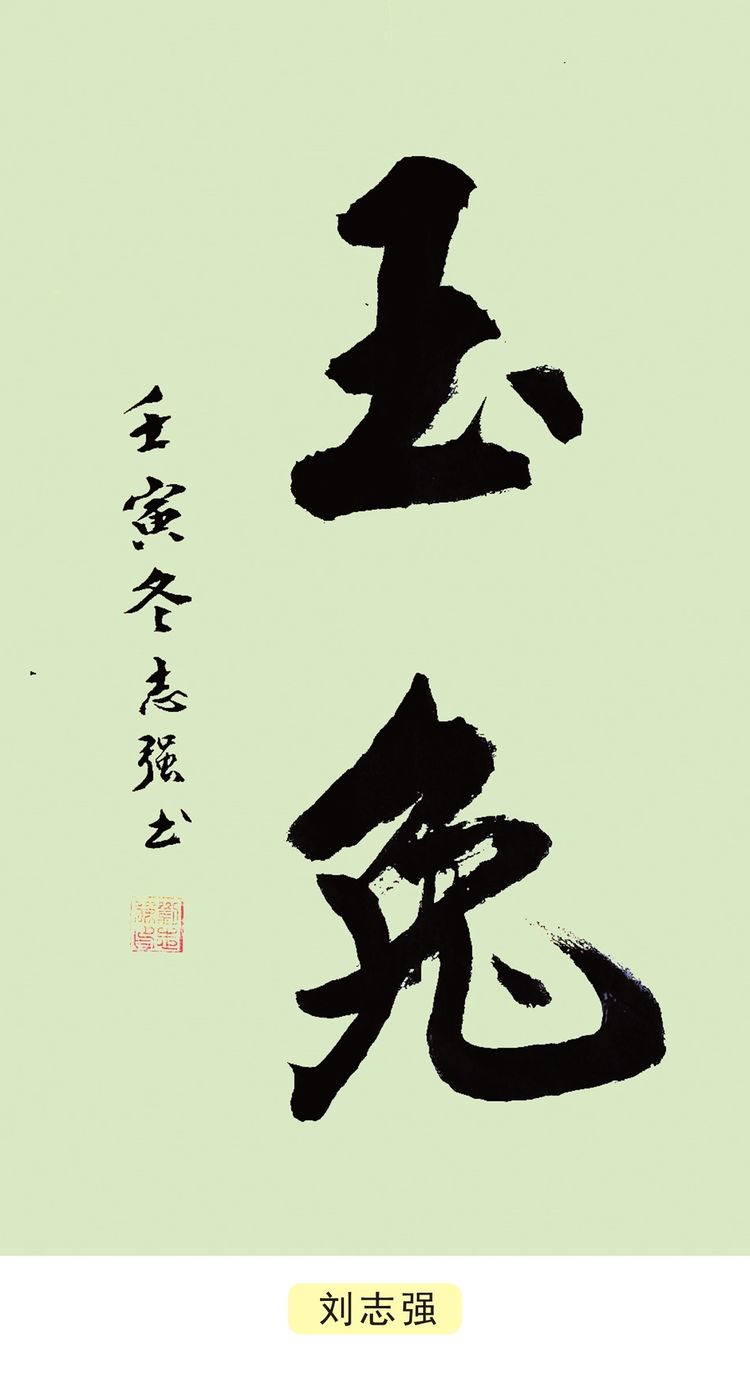 玉兔
壬寅冬志强书
刘志强